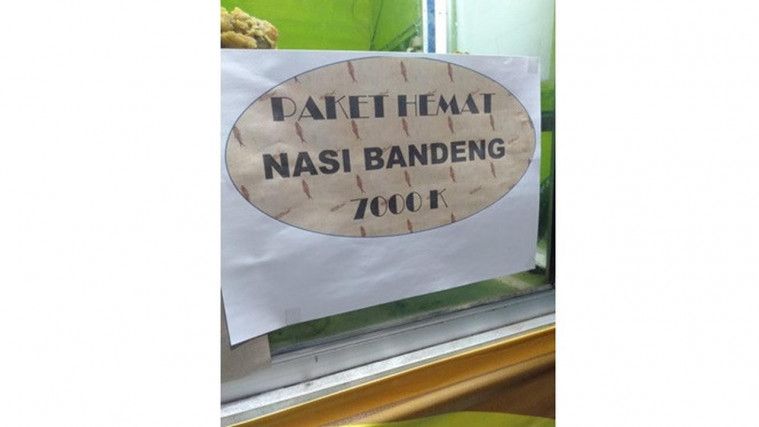 PAKET HEMAT
NASI BANDENG
7000 K